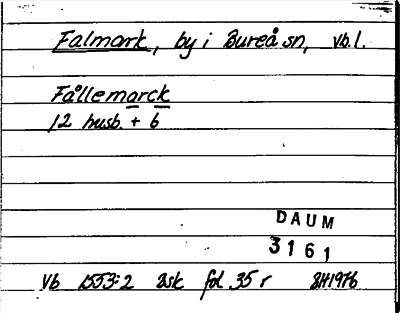 Falmark, by i Bureå sn, vb.l.
Fållemarck
12 husb. + 6
DAUM
3161
Vb 1553:2 ask fol 35 r SH1976